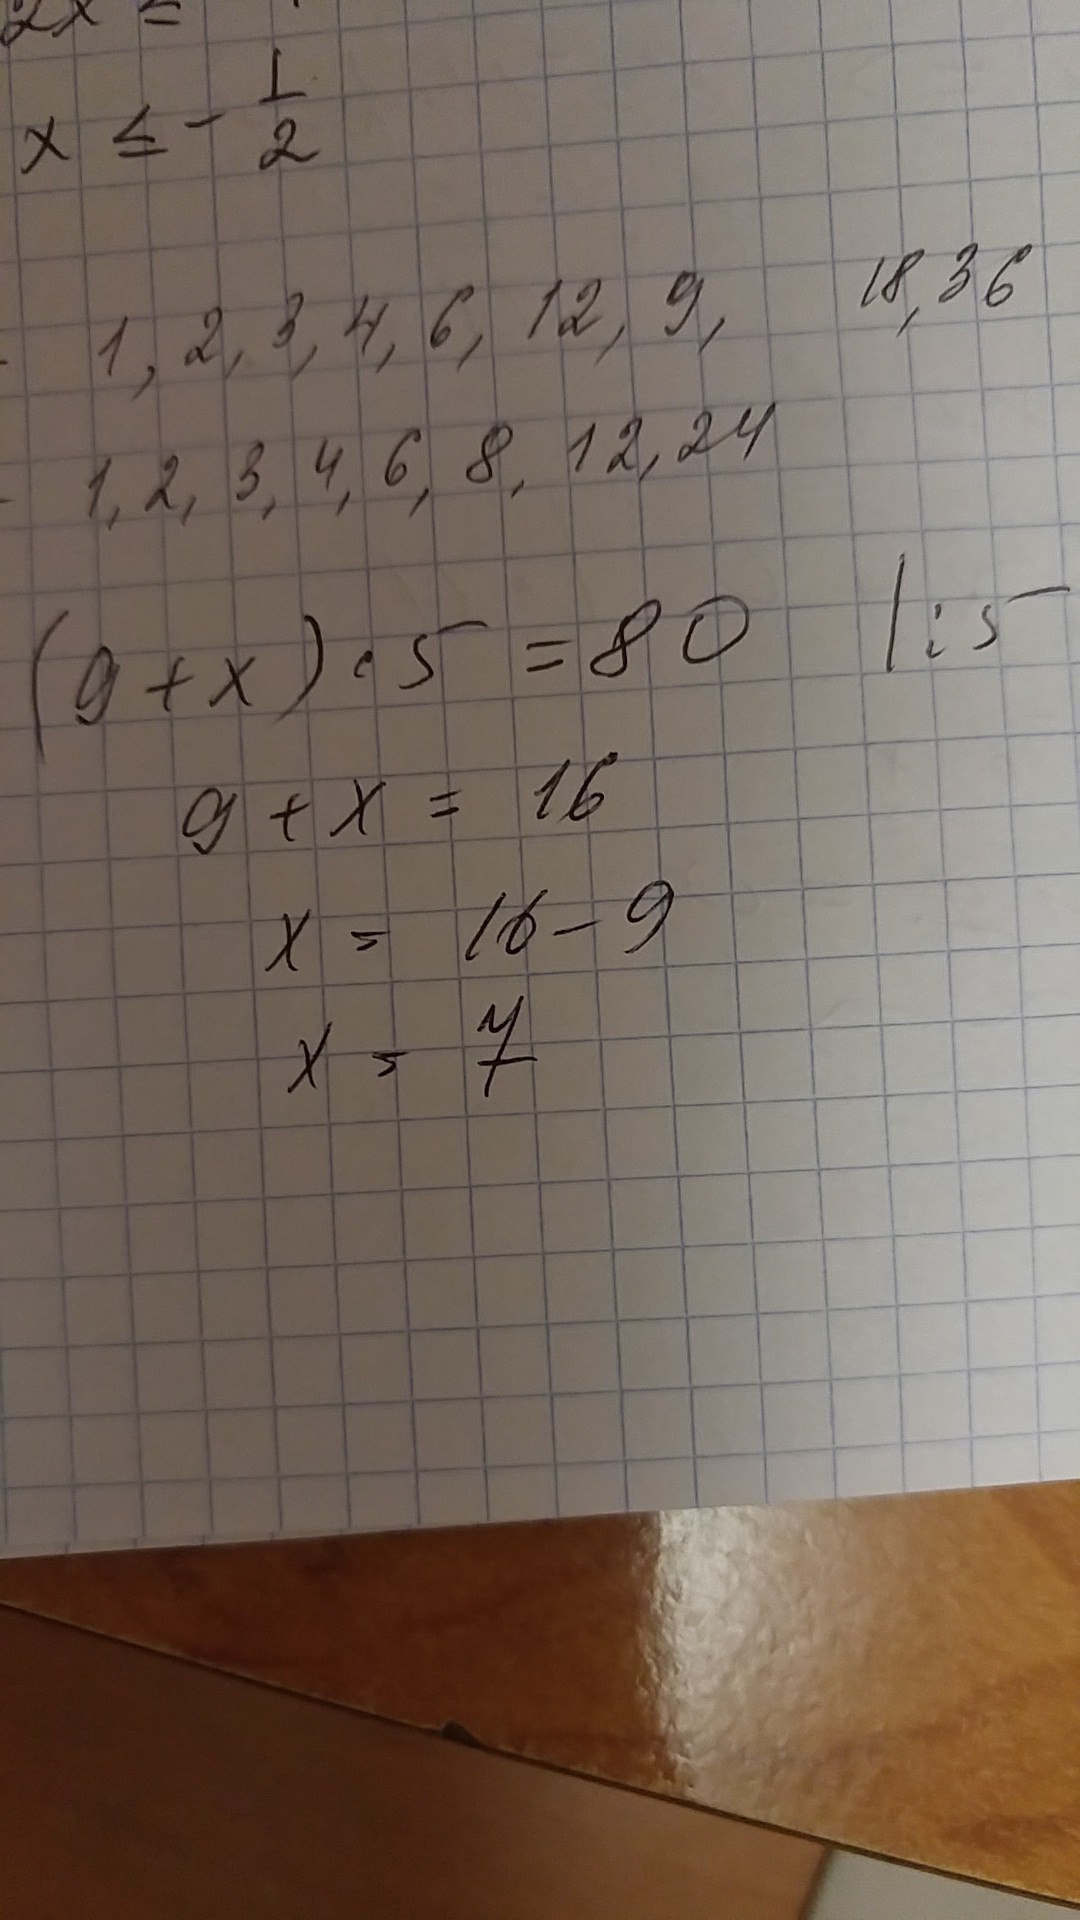 2x ≤
x ≤ - 1/2
1, 2, 3, 4, 6, 12, 9, 18, 36
1, 2, 3, 4, 6, 8, 12, 24
(9 + x) · 5 = 80 |:5
9 + x = 16
x = 16 - 9
x = 7